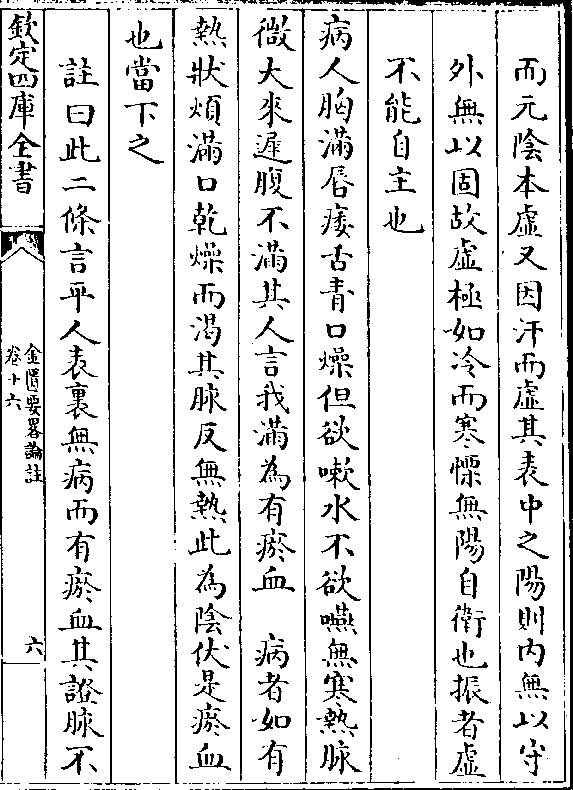 而元陰本虛又因汗而虛其表中之陽則内無以守
外無以固故虛極如冷而寒慄無陽自衛也振者虛
不能自主也
病人胸滿唇痿舌青口燥但欲嗽水不欲嚥無寒熱脉
微大來遲腹不滿其人言我滿為有瘀血　病者如有
熱狀煩滿口乾燥而渴其脉反無熱此為陰伏是瘀血
也當下之
註曰此二條言平人表裏無病而有瘀血其證脉不
欽定四庫全書
金匱要畧論註
卷十六
六